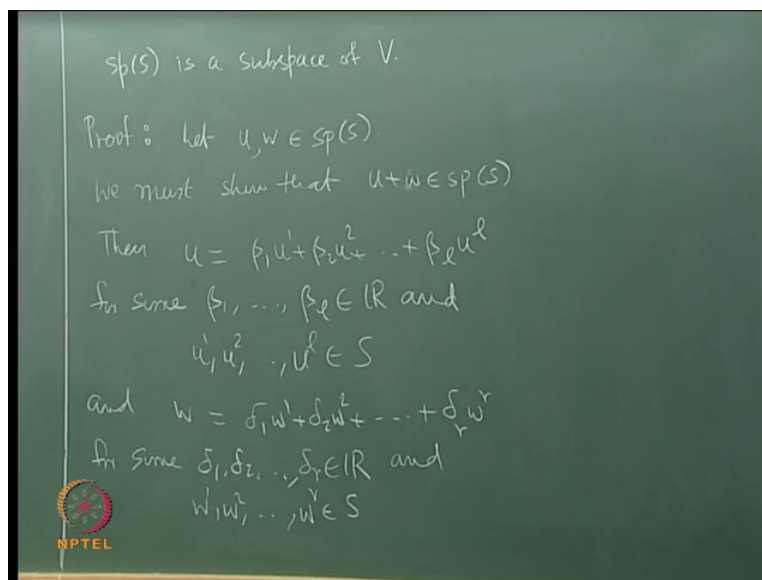 sp(S) is a subspace of V.
Proof : Let u, w ∈ sp(S).
We must show that u+w ∈ sp(S)
Then u = β₁u¹ + β₂u² + .. + βₗuˡ
for some β₁, ..., βₗ ∈ ℝ and
u¹, u², .., uˡ ∈ S
and w = δ₁w¹ + δ₂w² + --- + δᵣwʳ
for some δ₁, δ₂, .., δᵣ ∈ ℝ and
w¹, w², .., wʳ ∈ S
NPTEL